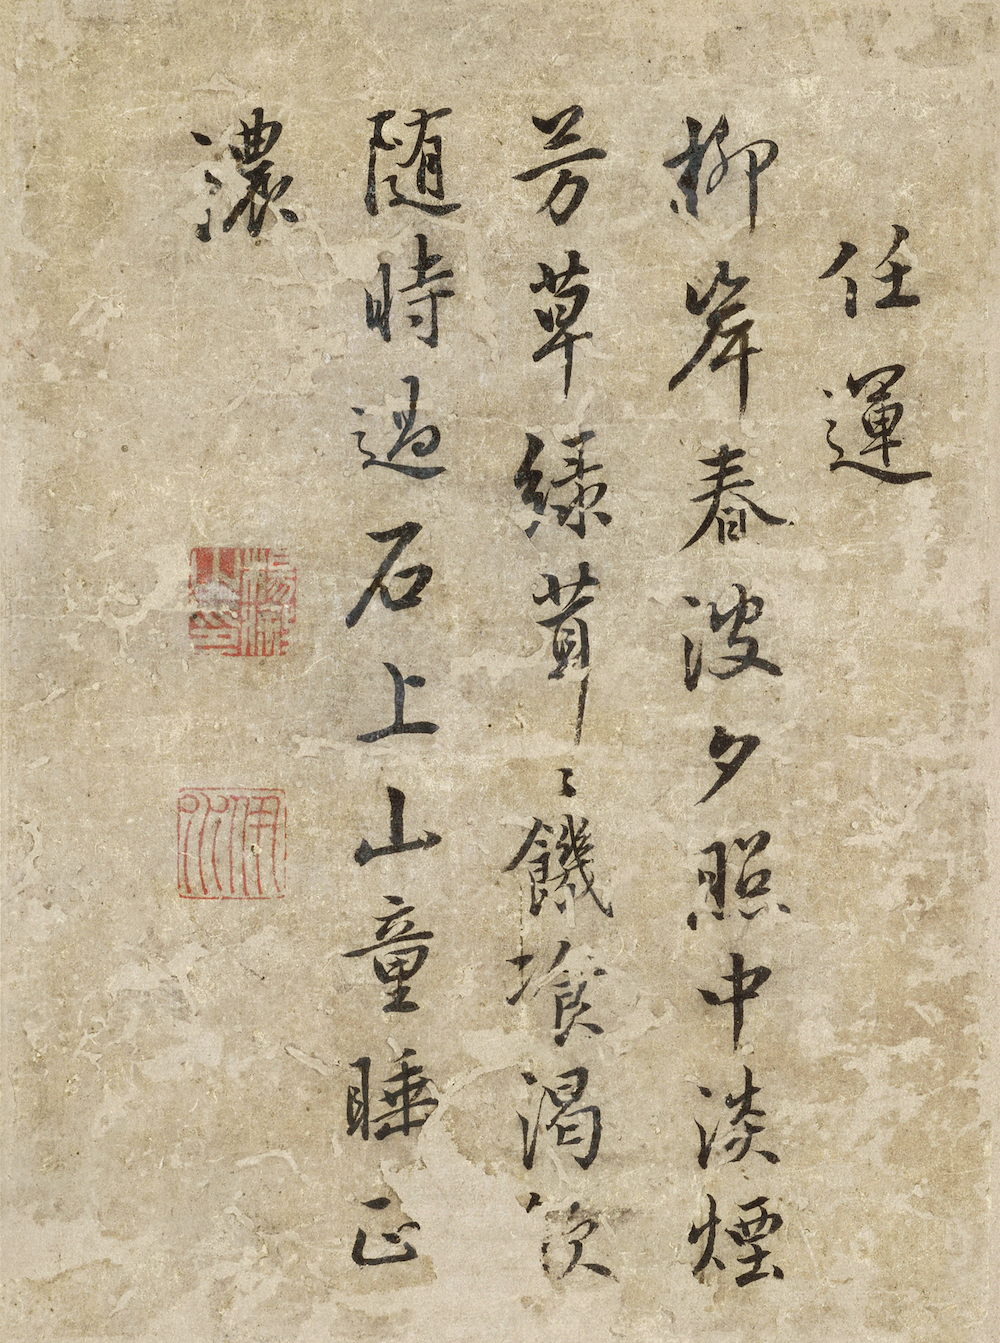 任運
柳岸春波夕照中淡煙
芳草綠茸〻饑飡渴飲
随時過石上山童睡正
濃